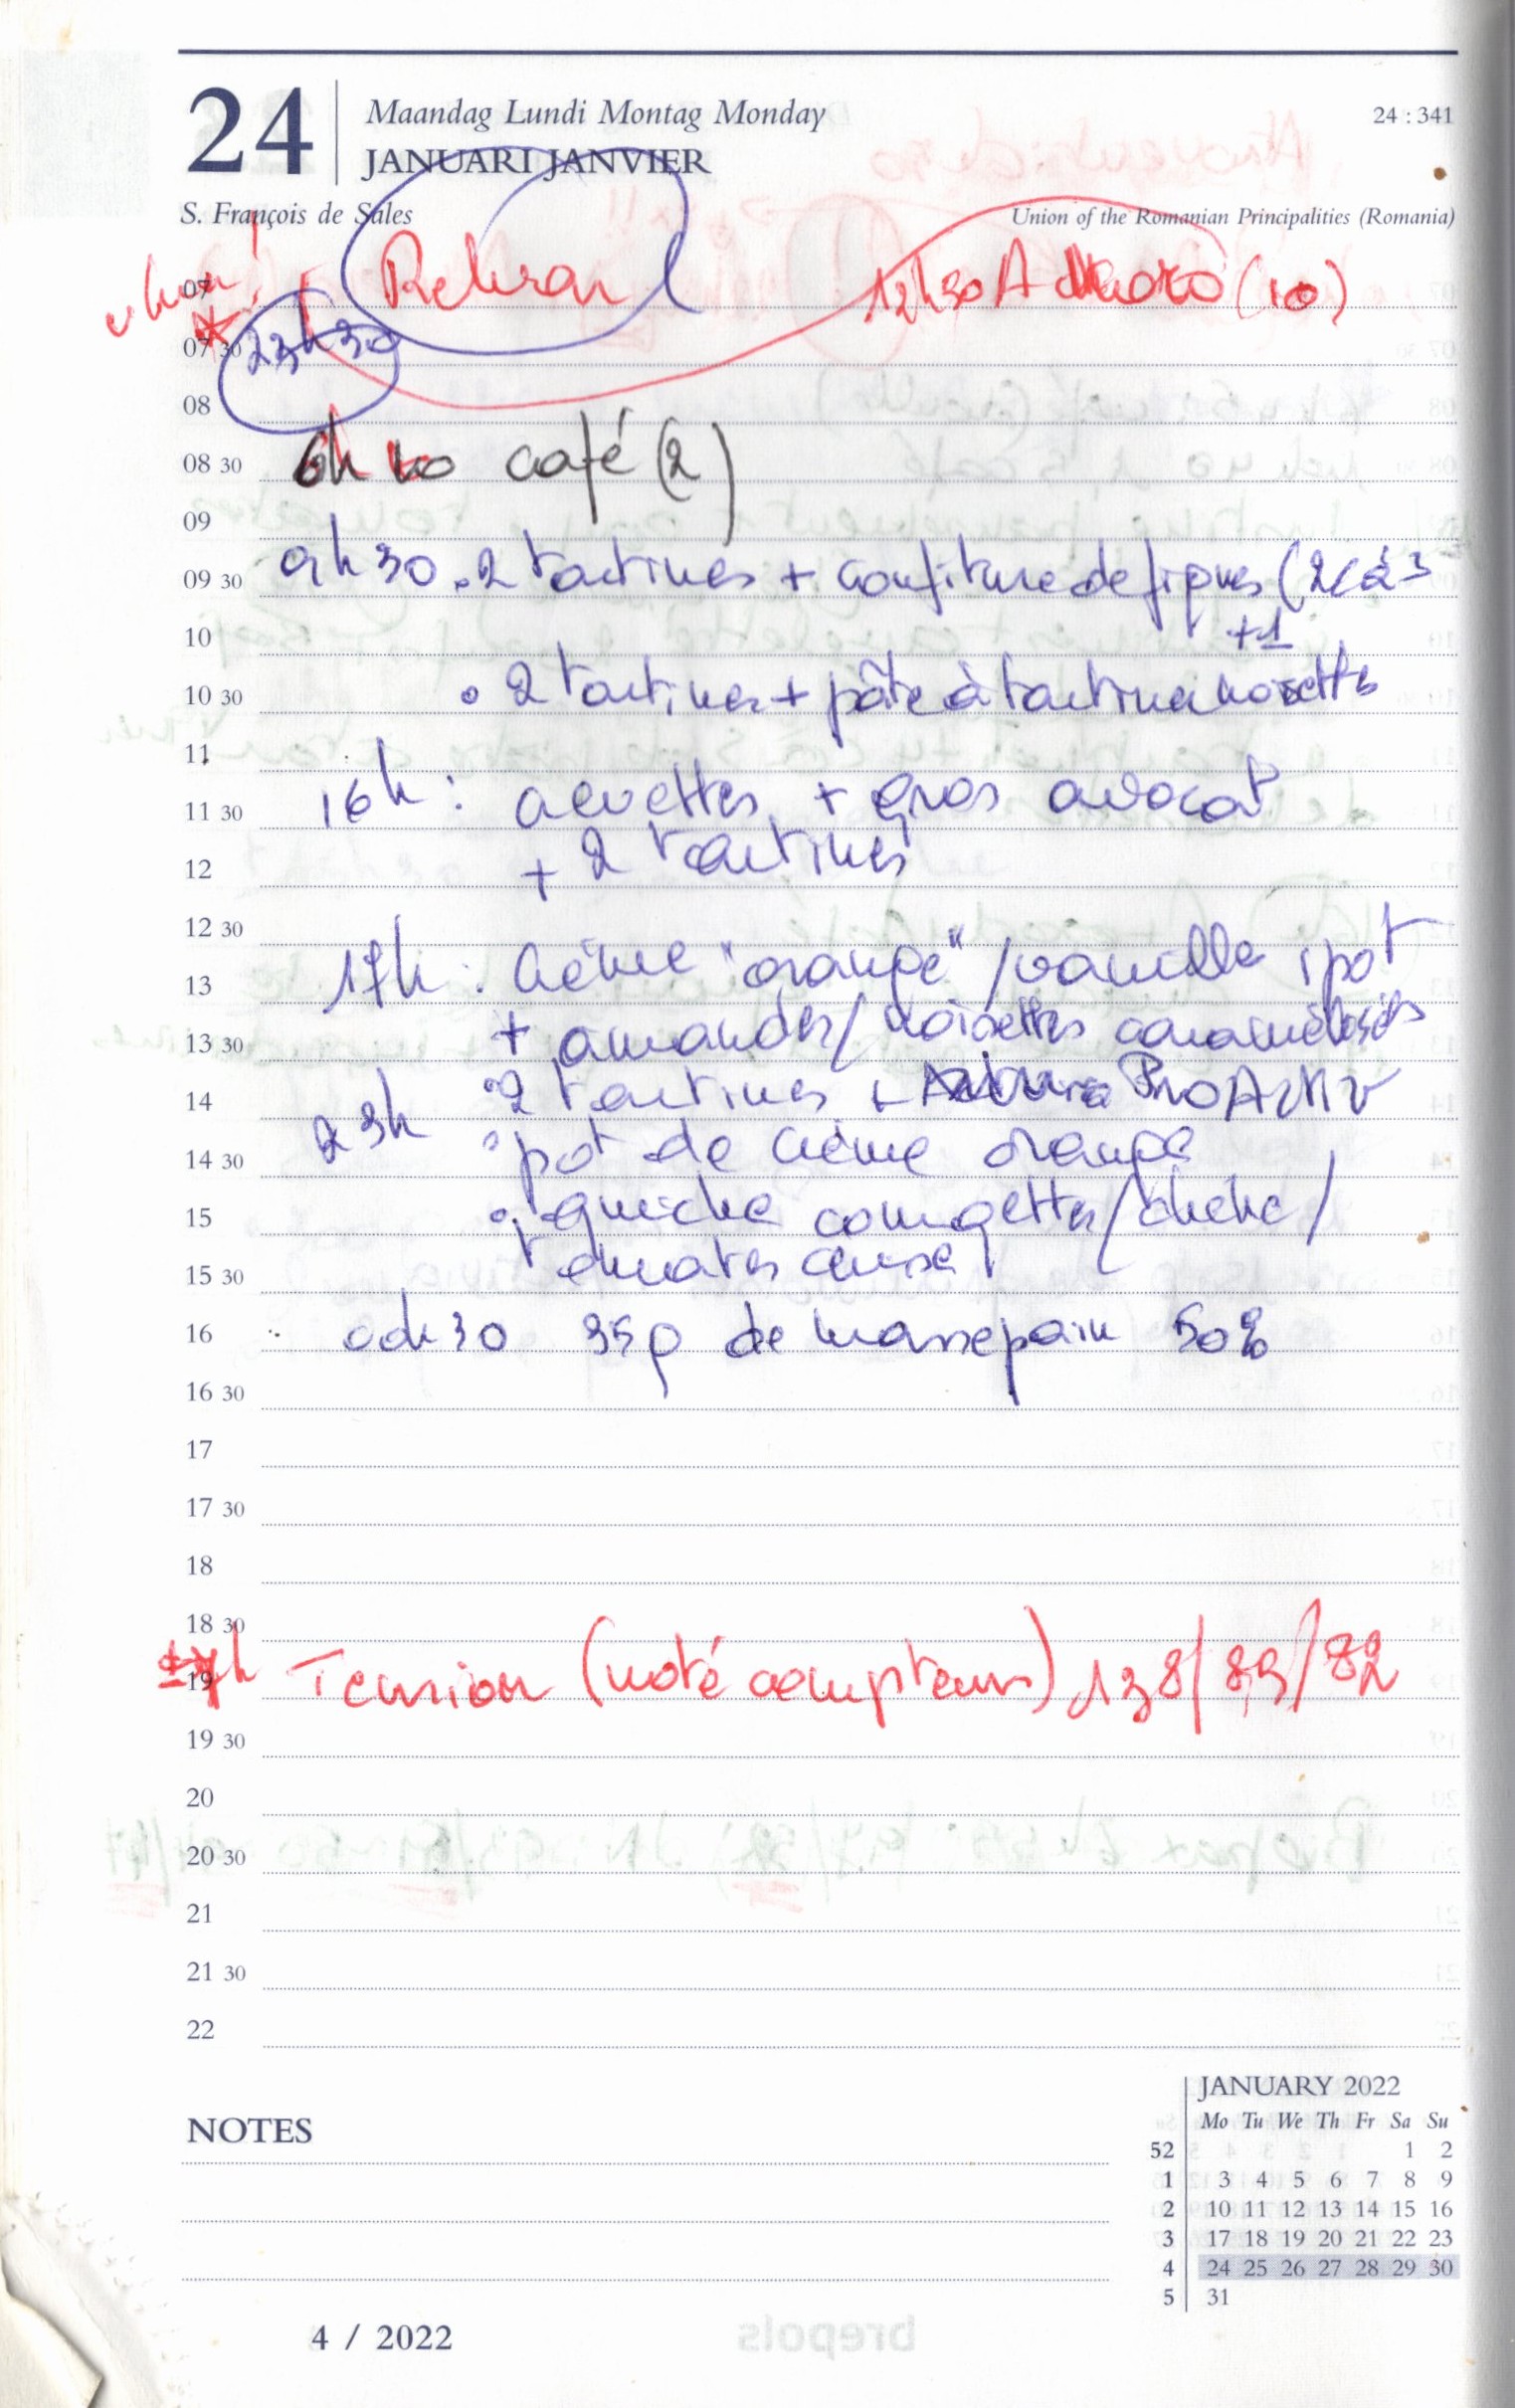 24 Maandag Lundi Montag Monday 24 : 341
JANUARI JANVIER
S. François de Sales Union of the Romanian Principalities (Romania)
07 12h30 (10)
07 30 23h30
08
08 30 6h café (2)
09
09 30 9h30 . 2 tartines + confiture de figues (2càs
10 +1
10 30 • 2 tartines + pâte à tartiner noisettes
11
11 30 16h : crevettes + gros avocat
12 + 2 tartines
12 30
13 17h : crème "orange" / vanille 1 pot
13 30 + amandes / noisettes caramélisées
14 23h • 2 tartines + ProActiv
14 30 • pot de crème orange
15 • quiche courgettes / chèvre /
15 30 tomates cerise
16 00h30 35g de massepain 50%
16 30
17
17 30
18
18 30
19 Tension (noté compteurs) 138/89/82
19 30
20
20 30
21
21 30
22
NOTES
JANUARY 2022
Mo Tu We Th Fr Sa Su
52 1 2
1 3 4 5 6 7 8 9
2 10 11 12 13 14 15 16
3 17 18 19 20 21 22 23
4 24 25 26 27 28 29 30
5 31
4 / 2022
brepols